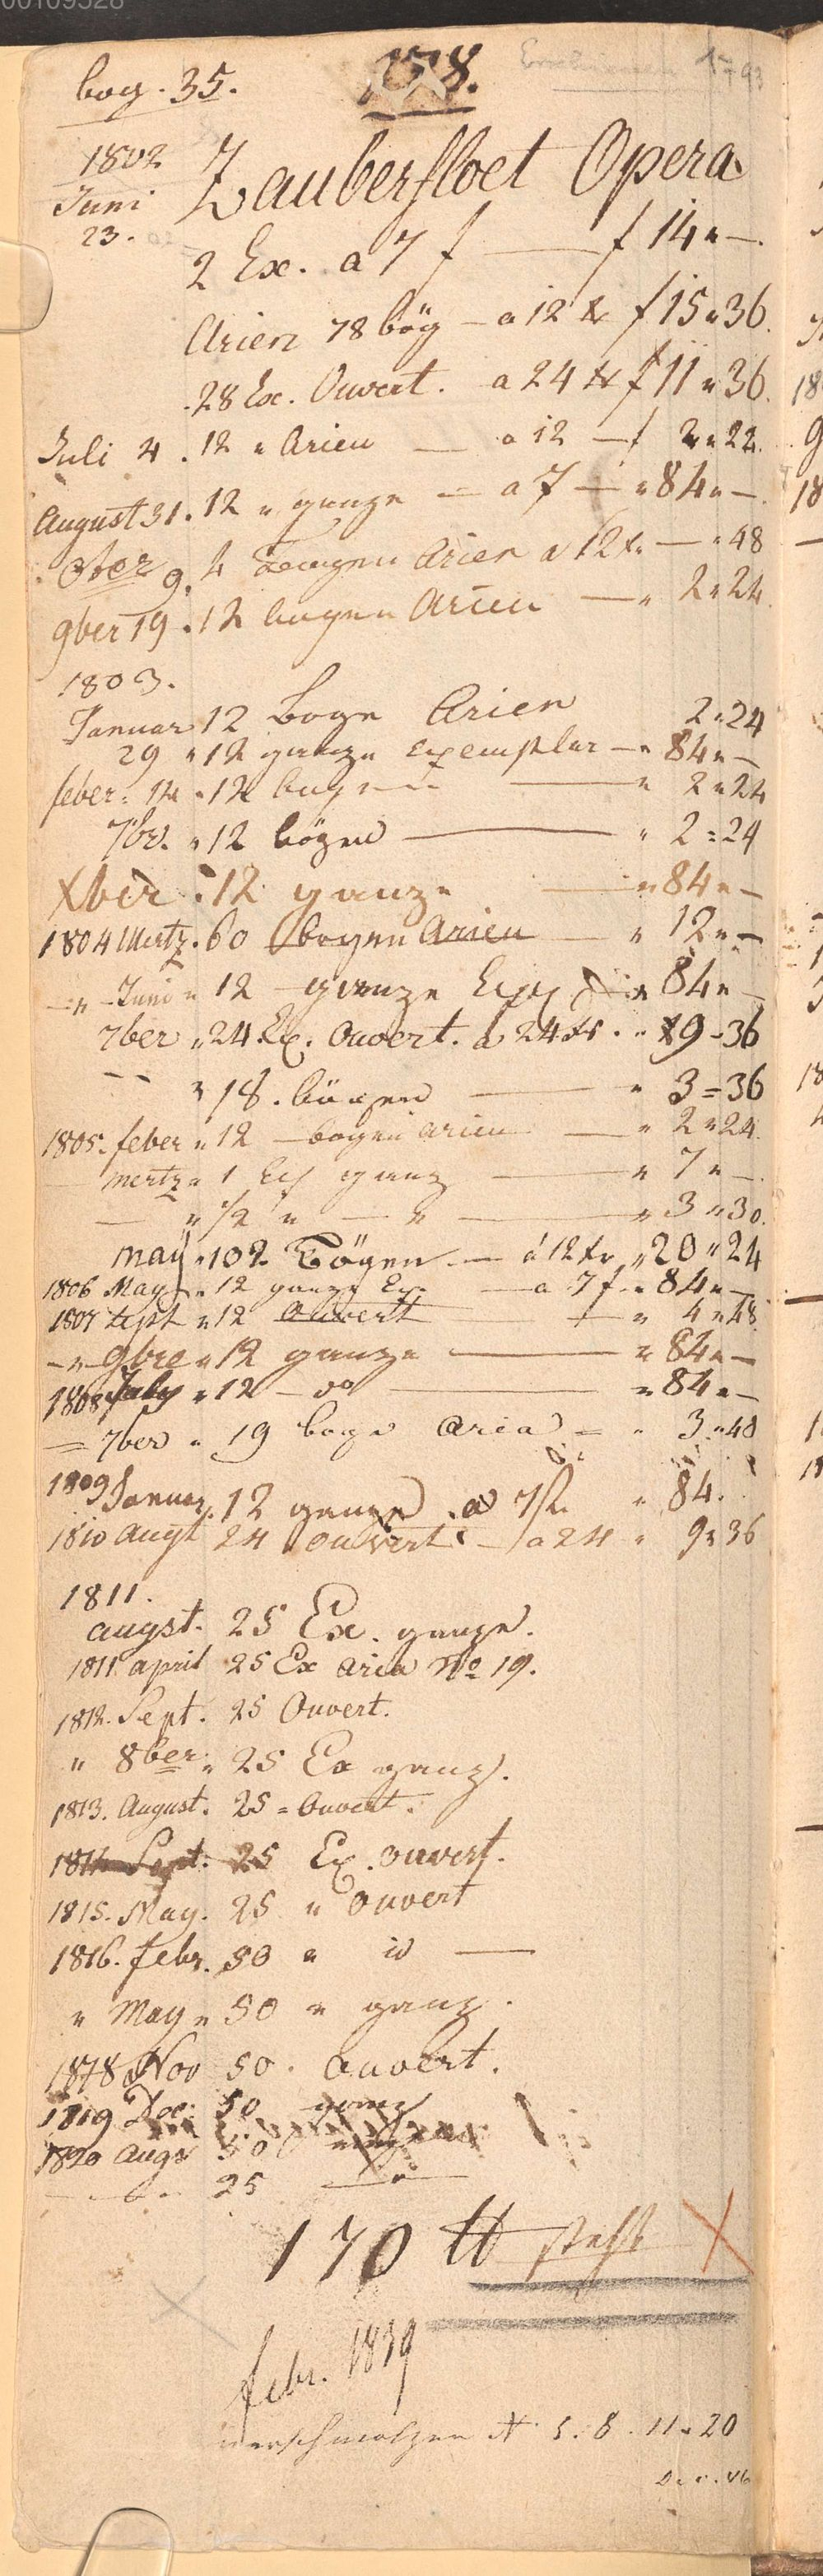 00109528
bog. 35.
178.
1793
1802
Juni
23.
Zauberfloet Opera
2 Ex. a 7 f — f 14 " —.
Arien 78 bög — a 12 xr f 15 " 36.
28 Ex. Ouvert. a 24 xr f 11 " 36.
Juli 4. 12 " Arien — a 12 — f 2 " 24.
August 31. 12 " ganze — a 7 — " 84 " —.
8ber 9. 4 bogen Arien a 12 x. — " 48
9ber 19. 12 bogen Arien — " 2 " 24.
1803.
Januar 12 Boge Arien 2 " 24
29 " 12 ganze Exemplar — " 84 " —
feber: 12 " 12 — " 2 " 24
7br. " 12 bögen — " 2 = 24
Xber. 12 ganze — " 84 " —
1804 Mertz. 60 bogen Arien — " 12 " —
— " — Juni " 12 — ganze Exp — " 84 " —
7ber " 24 Ex. Ouvert. a 24 xr. " 9 - 36
" 18. bögen — " 3 = 36
1805. feber " 12 — bogen arien — " 2 " 24.
— mertz " 1 Ex ganz — " 7 " —.
— " 1/2 " — " — " 3 " 30.
maÿ " 102 Bögen — á 12 xr " 20 " 24
1806 May " 12 ganze Ex. — a 7 f. " 84 " —
1807 Sept " 12 Ouvert — " 4 " 48.
— " — 9bre " 12 ganze — " 84 " —
1808 July " 12 — do — " 84 " —
= 7ber " 19 boge Aria = " 3 " 48
1809 Januar. 12 ganze a 7 f. " 84.
1810 Augt 24 Ouvert. — a 24 " 9 " 36
1811.
augst. 25 Ex. ganze.
1811 april 25 Ex Aria No 19.
1812. Sept. 25 Ouvert.
" 8ber " 25 Ex ganz.
1813. August. 25 = Ouvert.
1814 Sept. 25 Ex. ouvert.
1815. May. 25 " Ouvert
1816. febr. 50 " id —
" May " 50 " ganz.
1818 Nov 50. Ouvert.
1819 Dec: 50 ganz
1820 Augs 50
25 — " —
170 ℔
febr. 1839
verschmolzen N 5. 8. 11. 20